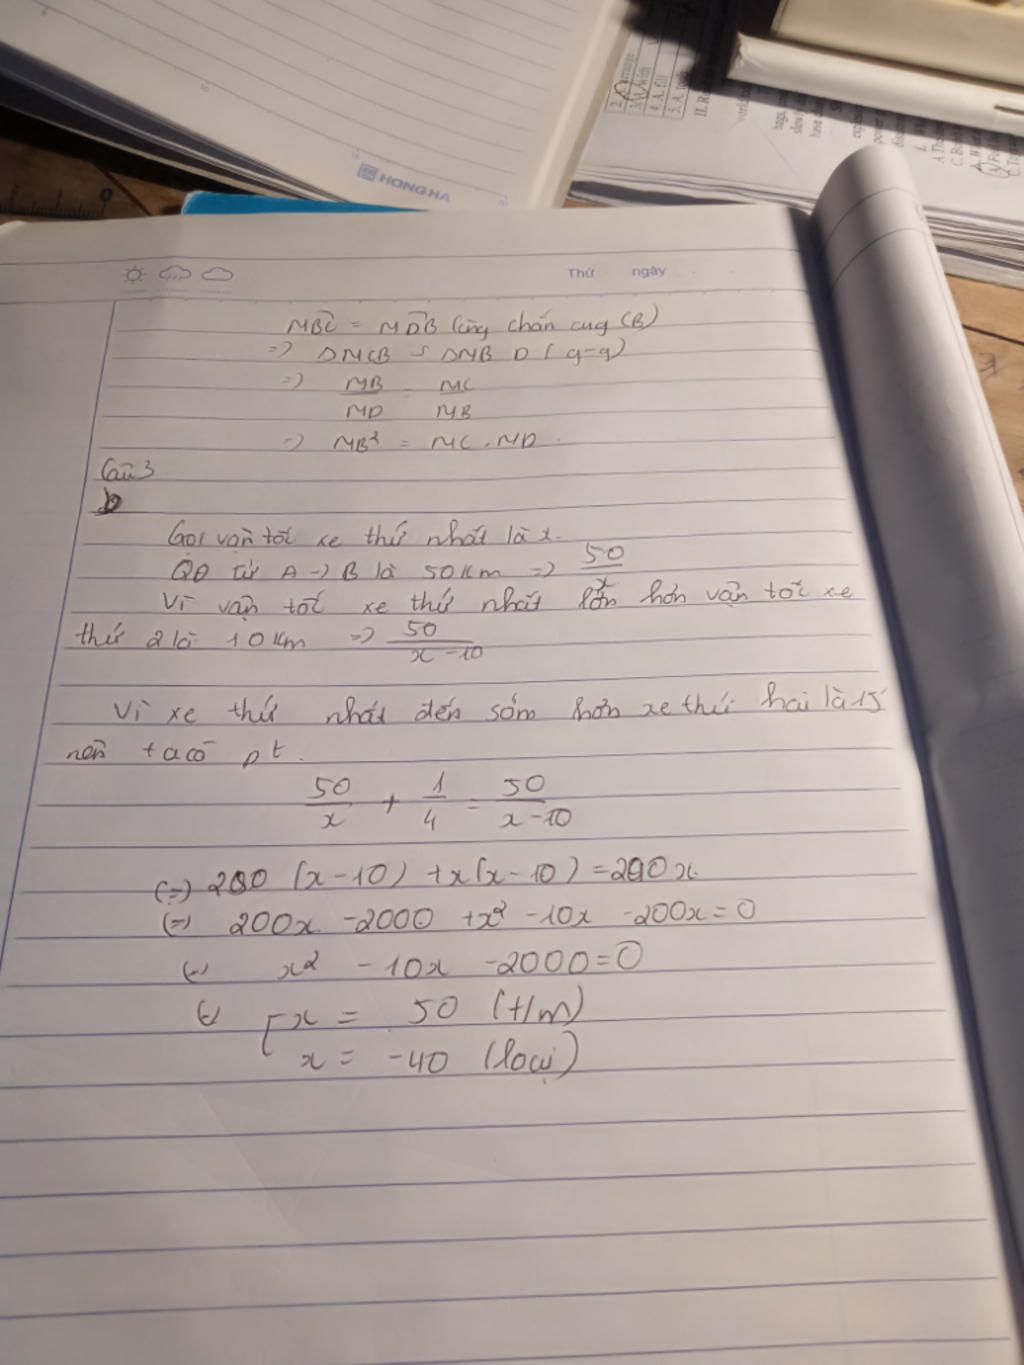 HONG HA
2.
3. A. with
4. A. fill
5. A.
Thứ ngày
MBC = MDB (cùng chắn cug CB)
=> ΔMCB ∽ ΔMBD (g-g)
=> MB/MD = MC/MB
=> MB² = MC . MD
Câu 3
b
Gọi vận tốc xe thứ nhất là x.
QĐ từ A -> B là 50 Km => 50/x
Vì vận tốc xe thứ nhất lớn hơn vận tốc xe
thứ 2 là 10 Km => 50/(x - 10)
Vì xe thứ nhất đến sớm hơn xe thứ hai là 15'
nên ta có pt.
50/x + 1/4 = 50/(x-10)
(=) 200 (x-10) + x(x-10) = 200x
(=) 200x - 2000 + x² - 10x - 200x = 0
(=) x² - 10x - 2000 = 0
(=) [ x = 50 (t/m)
x = -40 (loại)